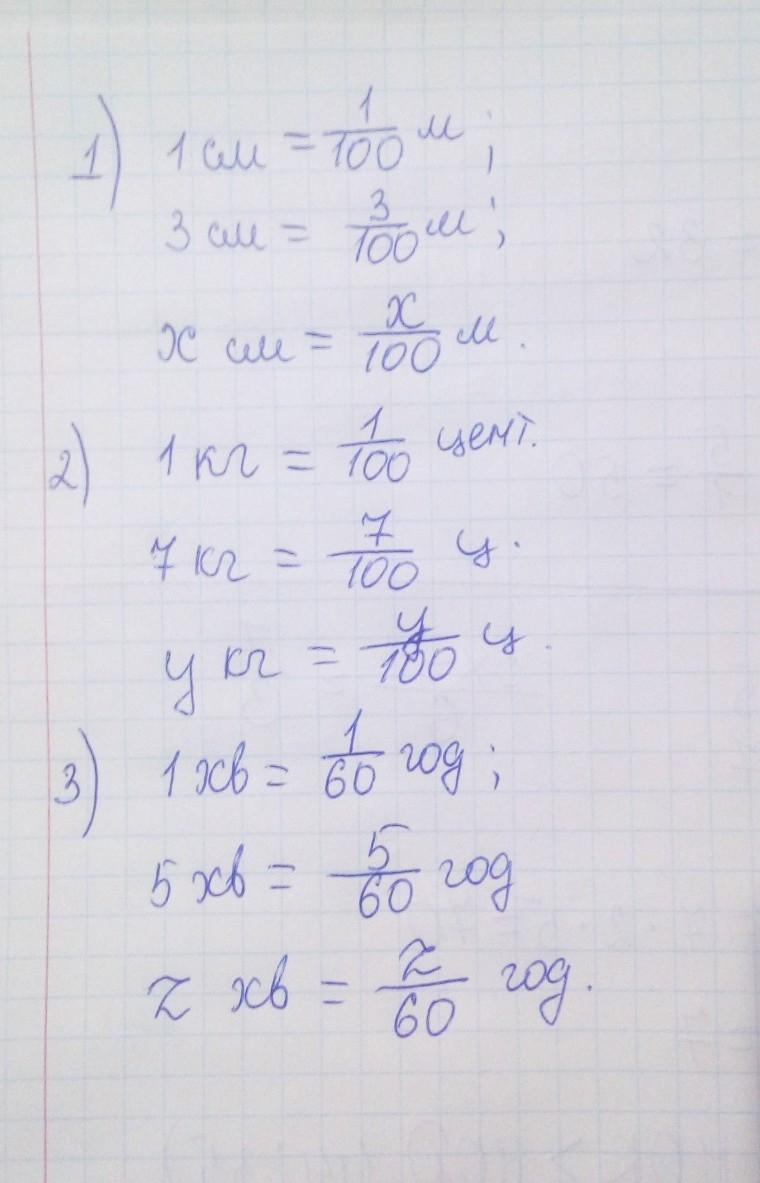 1) 1 см = 1/100 м;
3 см = 3/100 м;
x см = x/100 м.
2) 1 кг = 1/100 цент.
7 кг = 7/100 ц.
y кг = y/100 ц.
3) 1 хв = 1/60 год;
5 хв = 5/60 год
z хв = z/60 год.